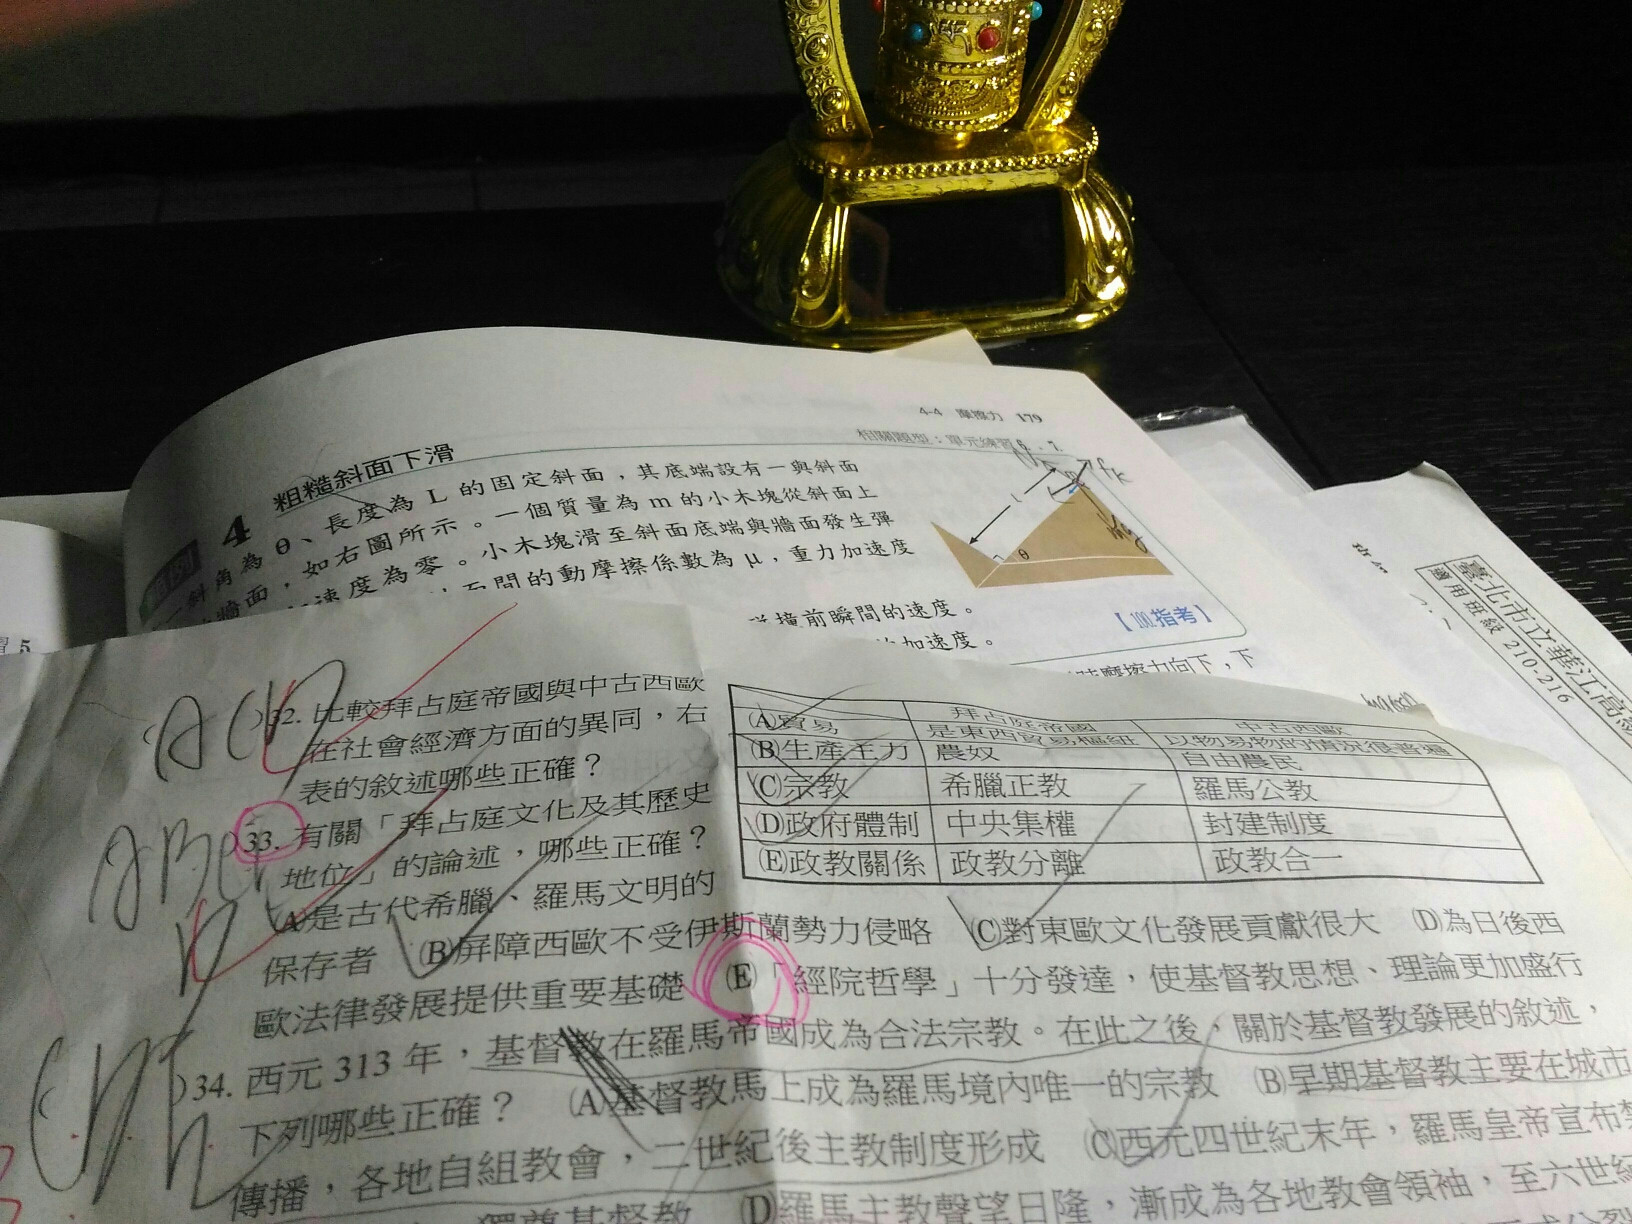 4-4 摩擦力 179
相關題型：單元練習 6、7
4 粗糙斜面下滑
斜角為 θ、長度為 L 的固定斜面，其底端設有一與斜面
牆面，如右圖所示。一個質量為 m 的小木塊從斜面上
速度為零。小木塊滑至斜面底端與牆面發生彈
間的動摩擦係數為 μ，重力加速度
撞前瞬間的速度。
加速度。
【100.指考】
L
θ
fk
mg
摩擦力向下，下
5
臺北市立華江高
適用班級 210-216
ACD
)32. 比較拜占庭帝國與中古西歐
在社會經濟方面的異同，右
表的敘述哪些正確？
拜占庭帝國 中古西歐
(A)貿易 是東西貿易樞紐 以物易物的情況很普遍
(B)生產主力 農奴 自由農民
(C)宗教 希臘正教 羅馬公教
(D)政府體制 中央集權 封建制度
(E)政教關係 政教分離 政教合一
)33. 有關「拜占庭文化及其歷史
地位」的論述，哪些正確？
(A)是古代希臘、羅馬文明的
保存者 (B)屏障西歐不受伊斯蘭勢力侵略 (C)對東歐文化發展貢獻很大 (D)為日後西
歐法律發展提供重要基礎 (E)「經院哲學」十分發達，使基督教思想、理論更加盛行
)34. 西元 313 年，基督教在羅馬帝國成為合法宗教。在此之後，關於基督教發展的敘述，
下列哪些正確？ (A)基督教馬上成為羅馬境內唯一的宗教 (B)早期基督教主要在城市
傳播，各地自組教會，二世紀後主教制度形成 (C)西元四世紀末年，羅馬皇帝宣布禁
獨尊基督教 (D)羅馬主教聲望日隆，漸成為各地教會領袖，至六世紀